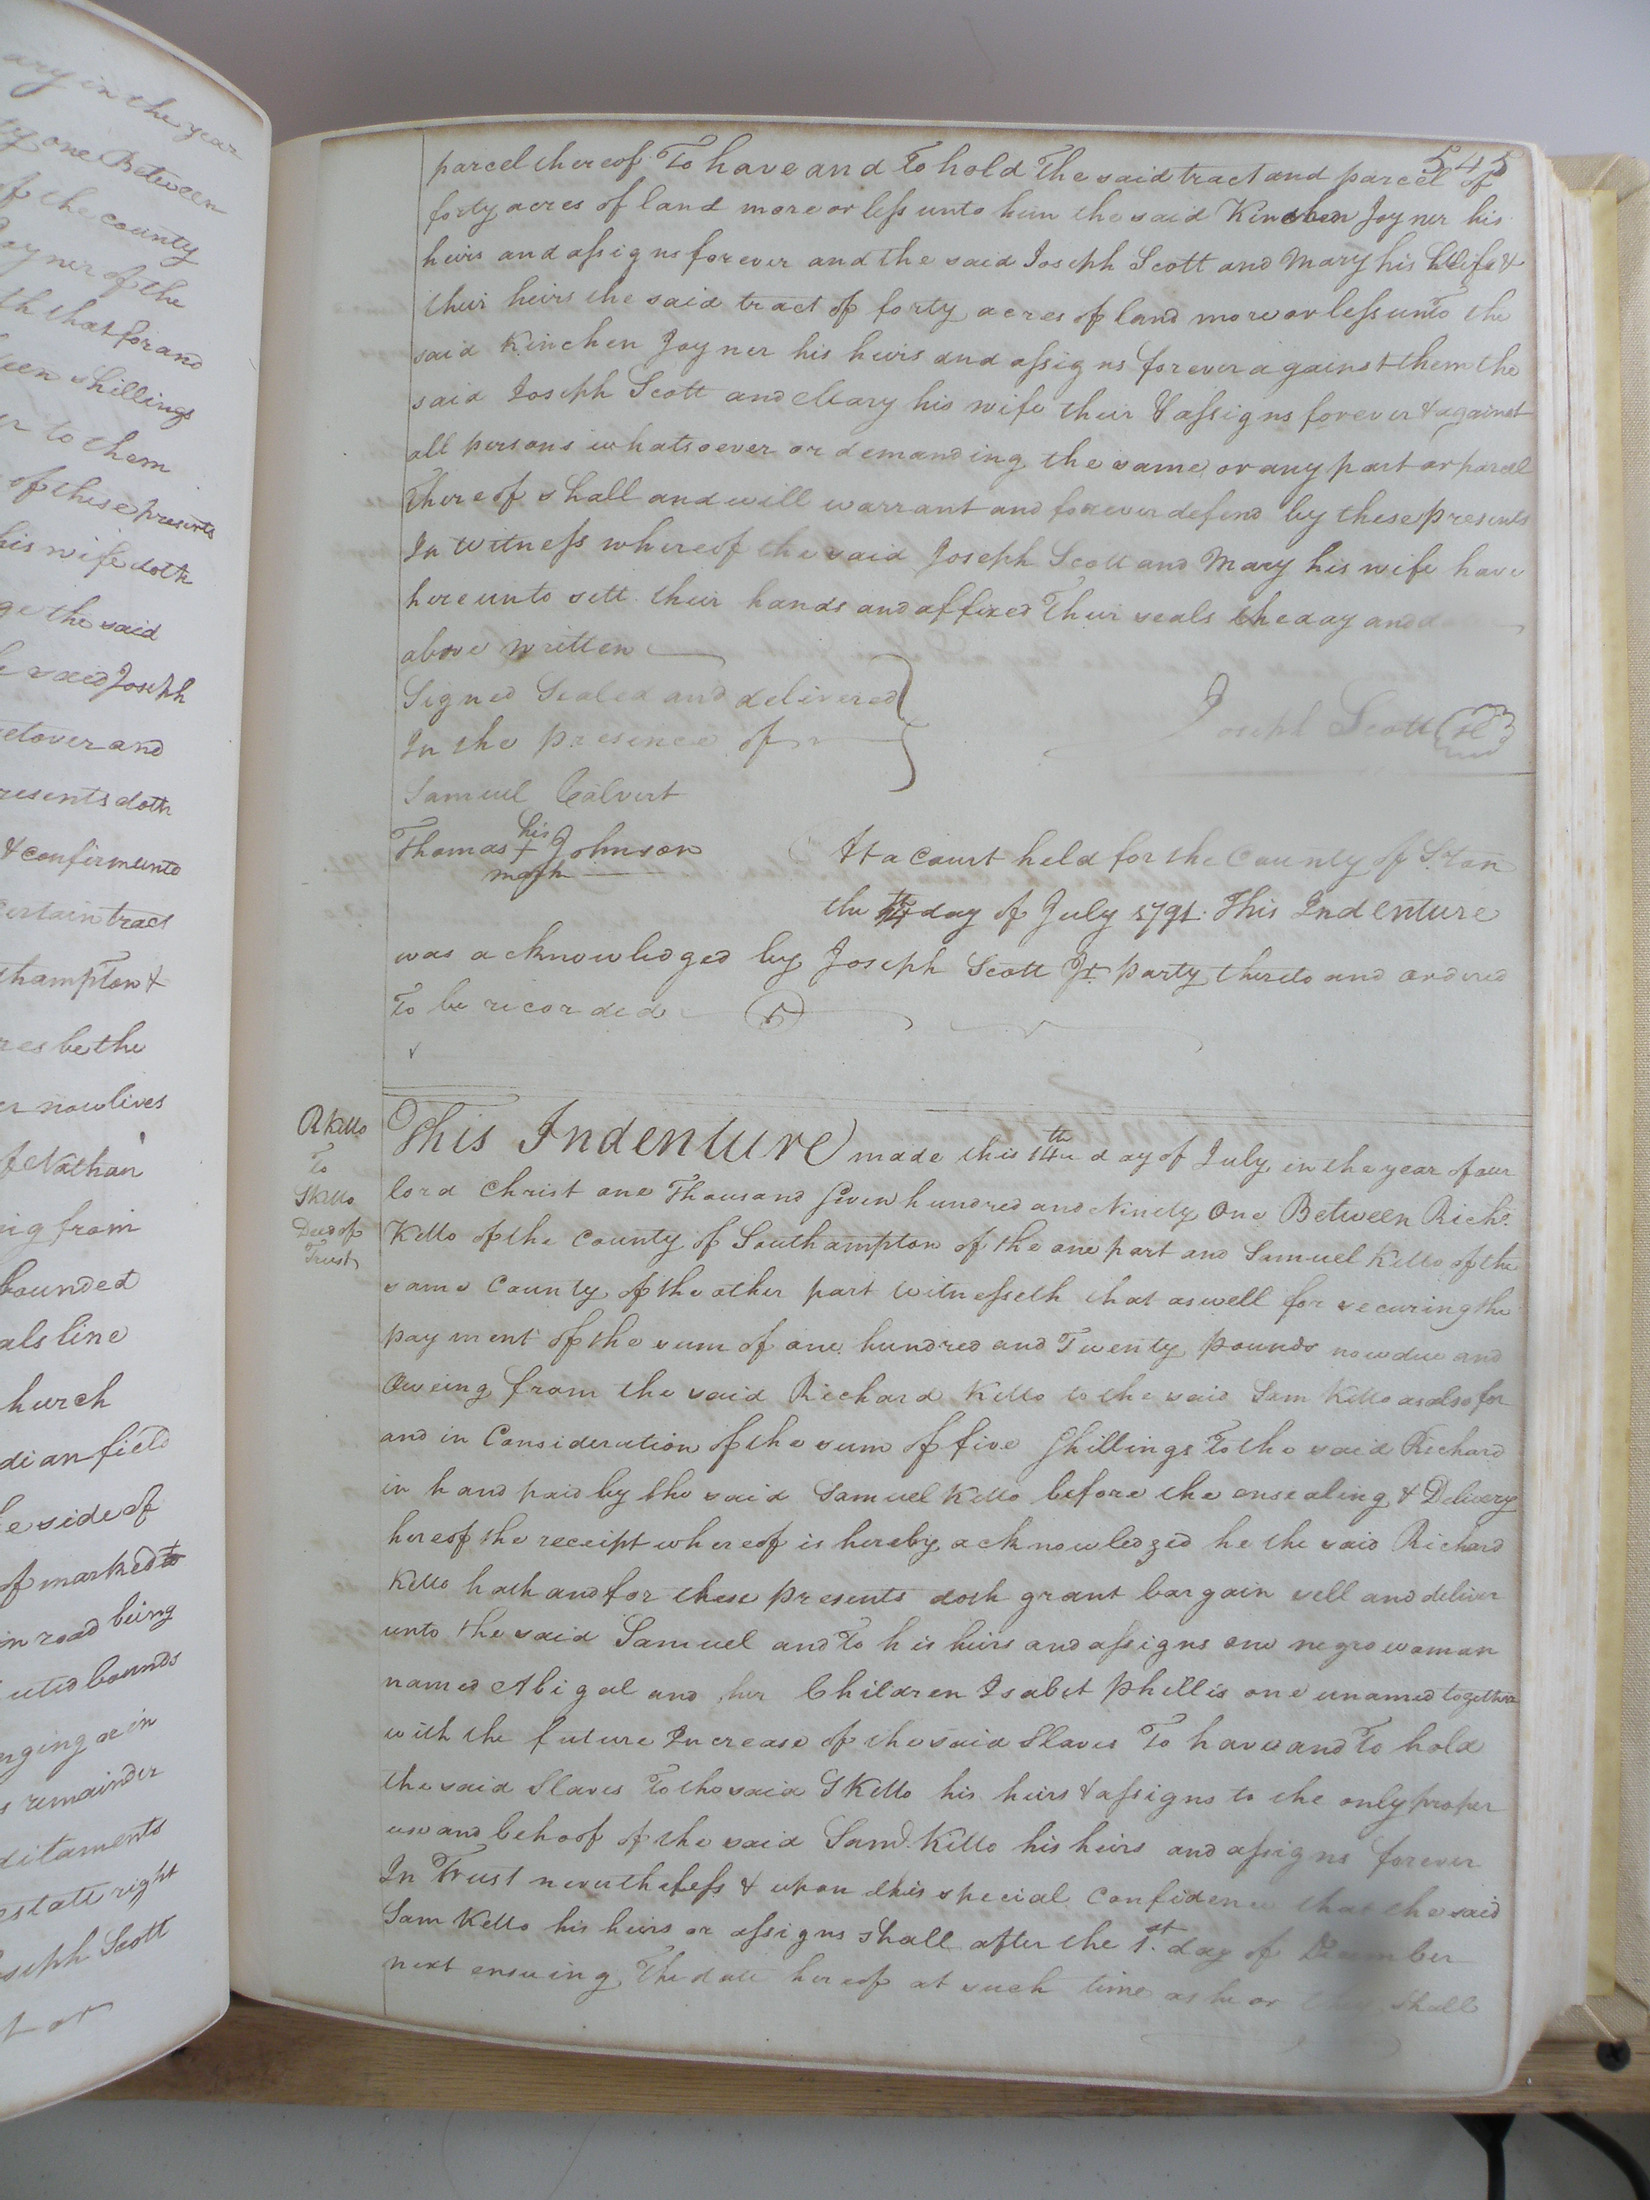 ary in the year
ty one Between
of the county
Joyner of the
th that for and
teen shillings
er to them
of these presents
his wife doth
ge the said
e said Joseph
etover and
resents doth
& confirm unto
certain tract
thampton &
res be the
er now lives
of Nathan
ing from
bounded
als line
hurch
dian field
e side of
of marked to
n road being
uted bounds
nging or in
s remainder
ditaments
estate right
oseph Scott
t or
545
parcel thereof To have and to hold The said tract and parcel of
forty acres of land more or less unto him the said Kinchen Joyner his
heirs and assigns forever and the said Joseph Scott and Mary his Wife &
their heirs the said tract of forty acres of land more or less unto the
said Kinchen Joyner his heirs and assigns forever against them the
said Joseph Scott and Mary his wife their & assigns forever & against
all persons whatsoever or demanding the same or any part or parcel
thereof shall and will warrant and forever defend by these presents
In witness whereof the said Joseph Scott and Mary his wife have
hereunto sett their hands and affixed Their seals the day and
above written
Signed Sealed and delivered
In the presence of
Joseph Scott
Samuel Calvert
his
Thomas + Johnson
mark
At a Court held for the County of S.ton
the 14th day of July 1791. This Indenture
was acknowledged by Joseph Scott Jr party thereto and ordered
To be recorded
R Kello
To
S Kello
Deed of
Trust
This Indenture made this 14th day of July in the year of our
lord Christ one Thousand Seven hundred and Ninety One Between Richd.
Kello of the County of Southampton of the one part and Samuel Kello of the
same County of the other part Witnesseth that as well for securing the
payment of the sum of one hundred and Twenty pounds now due and
Oweing from the said Richard Kello to the said Sam Kello as also for
and in Consideration of the sum of five Shillings To the said Richard
in hand paid by the said Samuel Kello before the ensealing & Delivery
hereof the receipt whereof is hereby acknowledged he the said Richard
Kello hath and for these presents doth grant bargain sell and deliver
unto the said Samuel and To his heirs and assigns one negro woman
named Abigal and her Children Isabet Phillis one unamed together
with the future Increase of the said Slaves To have and To hold
the said Slaves To the said S Kello his heirs & assigns to the only proper
use and behoof of the said Saml. Kello his heirs and assigns forever
In Trust nevertheless & upon this special Confidence that the said
Sam Kello his heirs or assigns shall after the 1st. day of December
next ensueing The date hereof at such time as he or they shall